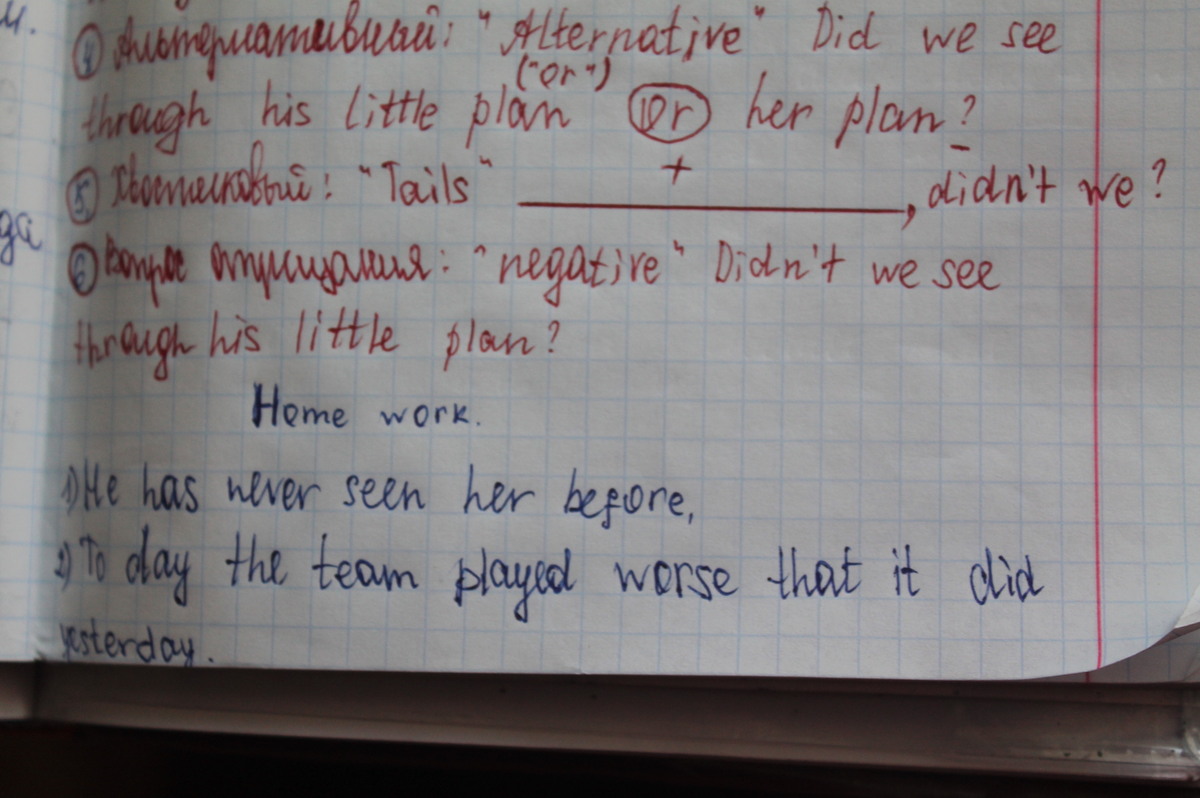 ④ Альтернативный: "Alternative" Did we see
("or")
through his little plan Or her plan?
+ -
⑤ Хвостиковый: "Tails" __________, didn't we?
⑥ Вопрос отрицания: "negative" Didn't we see
through his little plan?
Home work.
1) He has never seen her before,
2) To day the team played worse that it did
yesterday.